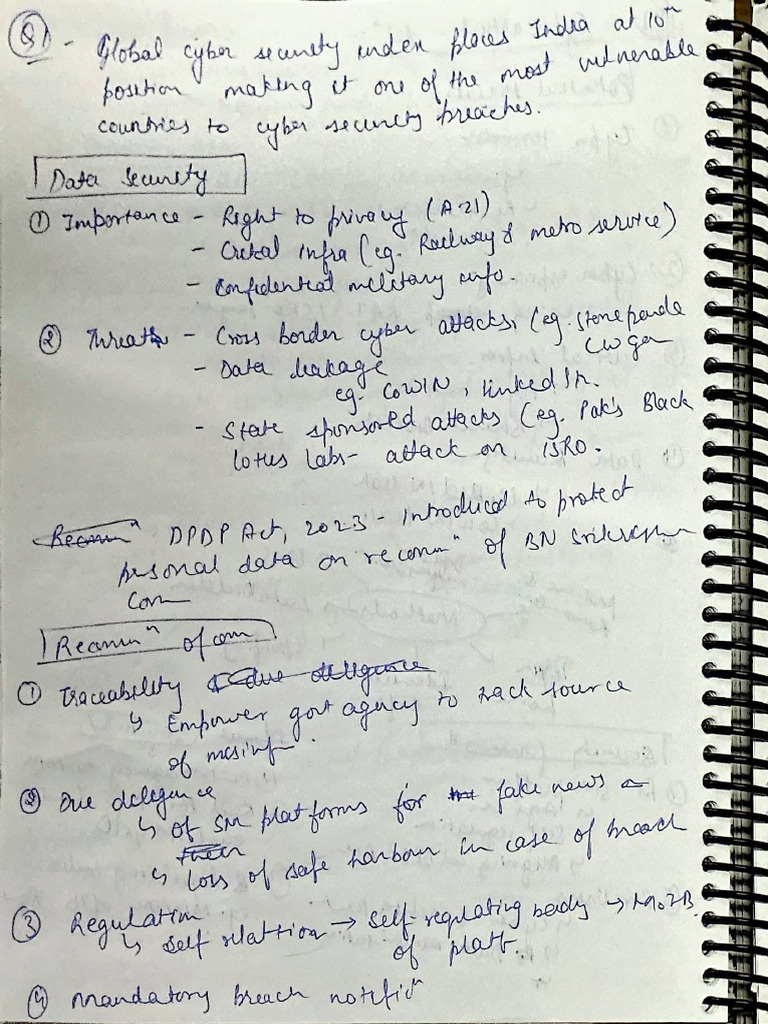 Q1 - Global cyber security index places India at 10th
position making it one of the most vulnerable
countries to cyber security breaches.
Data security
① Importance - Right to privacy (A-21)
- Critical infra (eg. Railway & metro service)
- Confidential military info.
② Threats - Cross border cyber attacks, (eg. Stone panda
- Data leakage
eg. CoWIN, LinkedIn.
- State sponsored attacks (eg. Pak's Black
lotus labs - attack on ISRO.
Recomn DPDP Act, 2023 - Introduced to protect
personal data on recomn of BN Srikrishna
Com
Recomn of com
① Traceability & due diligence
↳ Empower govt agency to track source
of misinfn.
② Due deligence
↳ of SM platforms for fake news
↳ loss of safe harbour in case of breach
③ Regulation
↳ self → self-regulating body → MoIB.
of platf.
④ Mandatory breach notificn